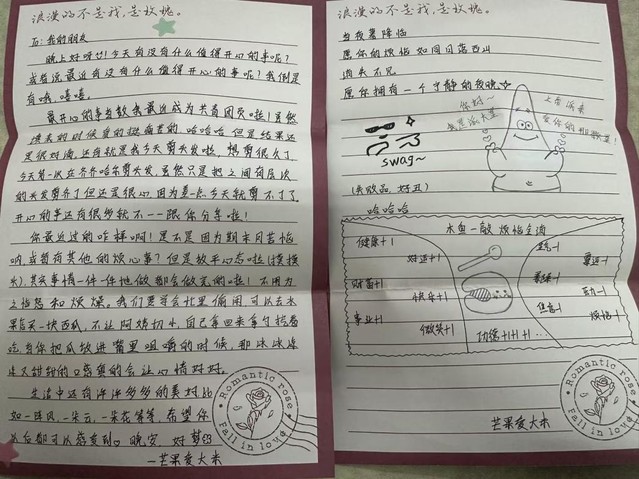 浪漫的不是我,是玫瑰。
To: 我的朋友
晚上好呀!今天有没有什么值得开心的事呢?
或者说最近有没有什么值得开心的事呢?我倒是
有哦,嘻嘻。
最开心的事当数我最近成为共青团员啦!虽然
演讲的时候 哈哈哈 但是结果还
是很好滴,还有就是我今天剪头发啦,想剪很久了
今天第一次在齐齐哈尔剪头发,虽然只是把之间有层次
的头发剪齐了但还是很开心因为差一点今天就剪不了了
开心的事还有很多就不一一跟你分享啦!
你最近过的咋样啊!是不是因为期末月苦恼
呐或者有其他的烦心事?但是放平心态啦(摸摸
头),其实事情一件一件地做都会做完的啦!不用为
之恼怒和烦燥。我们要学会忙里偷闲,可以去水
果店买一块西瓜,不让阿姨切斗,自己拿回来拿勺挖着
吃,当你把瓜放进嘴里咀嚼的时候,那冰冰凉
凉又甜甜的口感真的会让心情好好。
生活中还有许许多多的美好比
如一阵风,一朵云,一朵花等等,希望你
以后都可以感受到♡ 晚安 好梦
—芒果爱大米
Romantic rose
Fall in love
浪漫的不是我,是玫瑰。
当夜幕降临
愿你的烦恼如同日落西山
消失不见
愿你拥有一个宁静的夜晚
你好~
我是派大星
上看派来
爱你的派大星!
swag~
(失败品 好丑)
哈哈哈
木鱼一敲 烦恼全消
健康+1
好运+1
财富+1
快乐+1
事业+1
微笑+1
功德+1+1+1…
霉运-1
焦虑-1
烦恼-1
Romantic rose
Fall in love
芒果爱大米